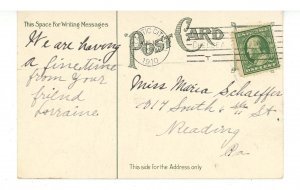 This Space For Writing Messages
We are having
a fine time
from your
friend
Lorraine
POST CARD
1910
Miss Maria Schaeffer
South
St
Reading
Pa
This side for the Address only